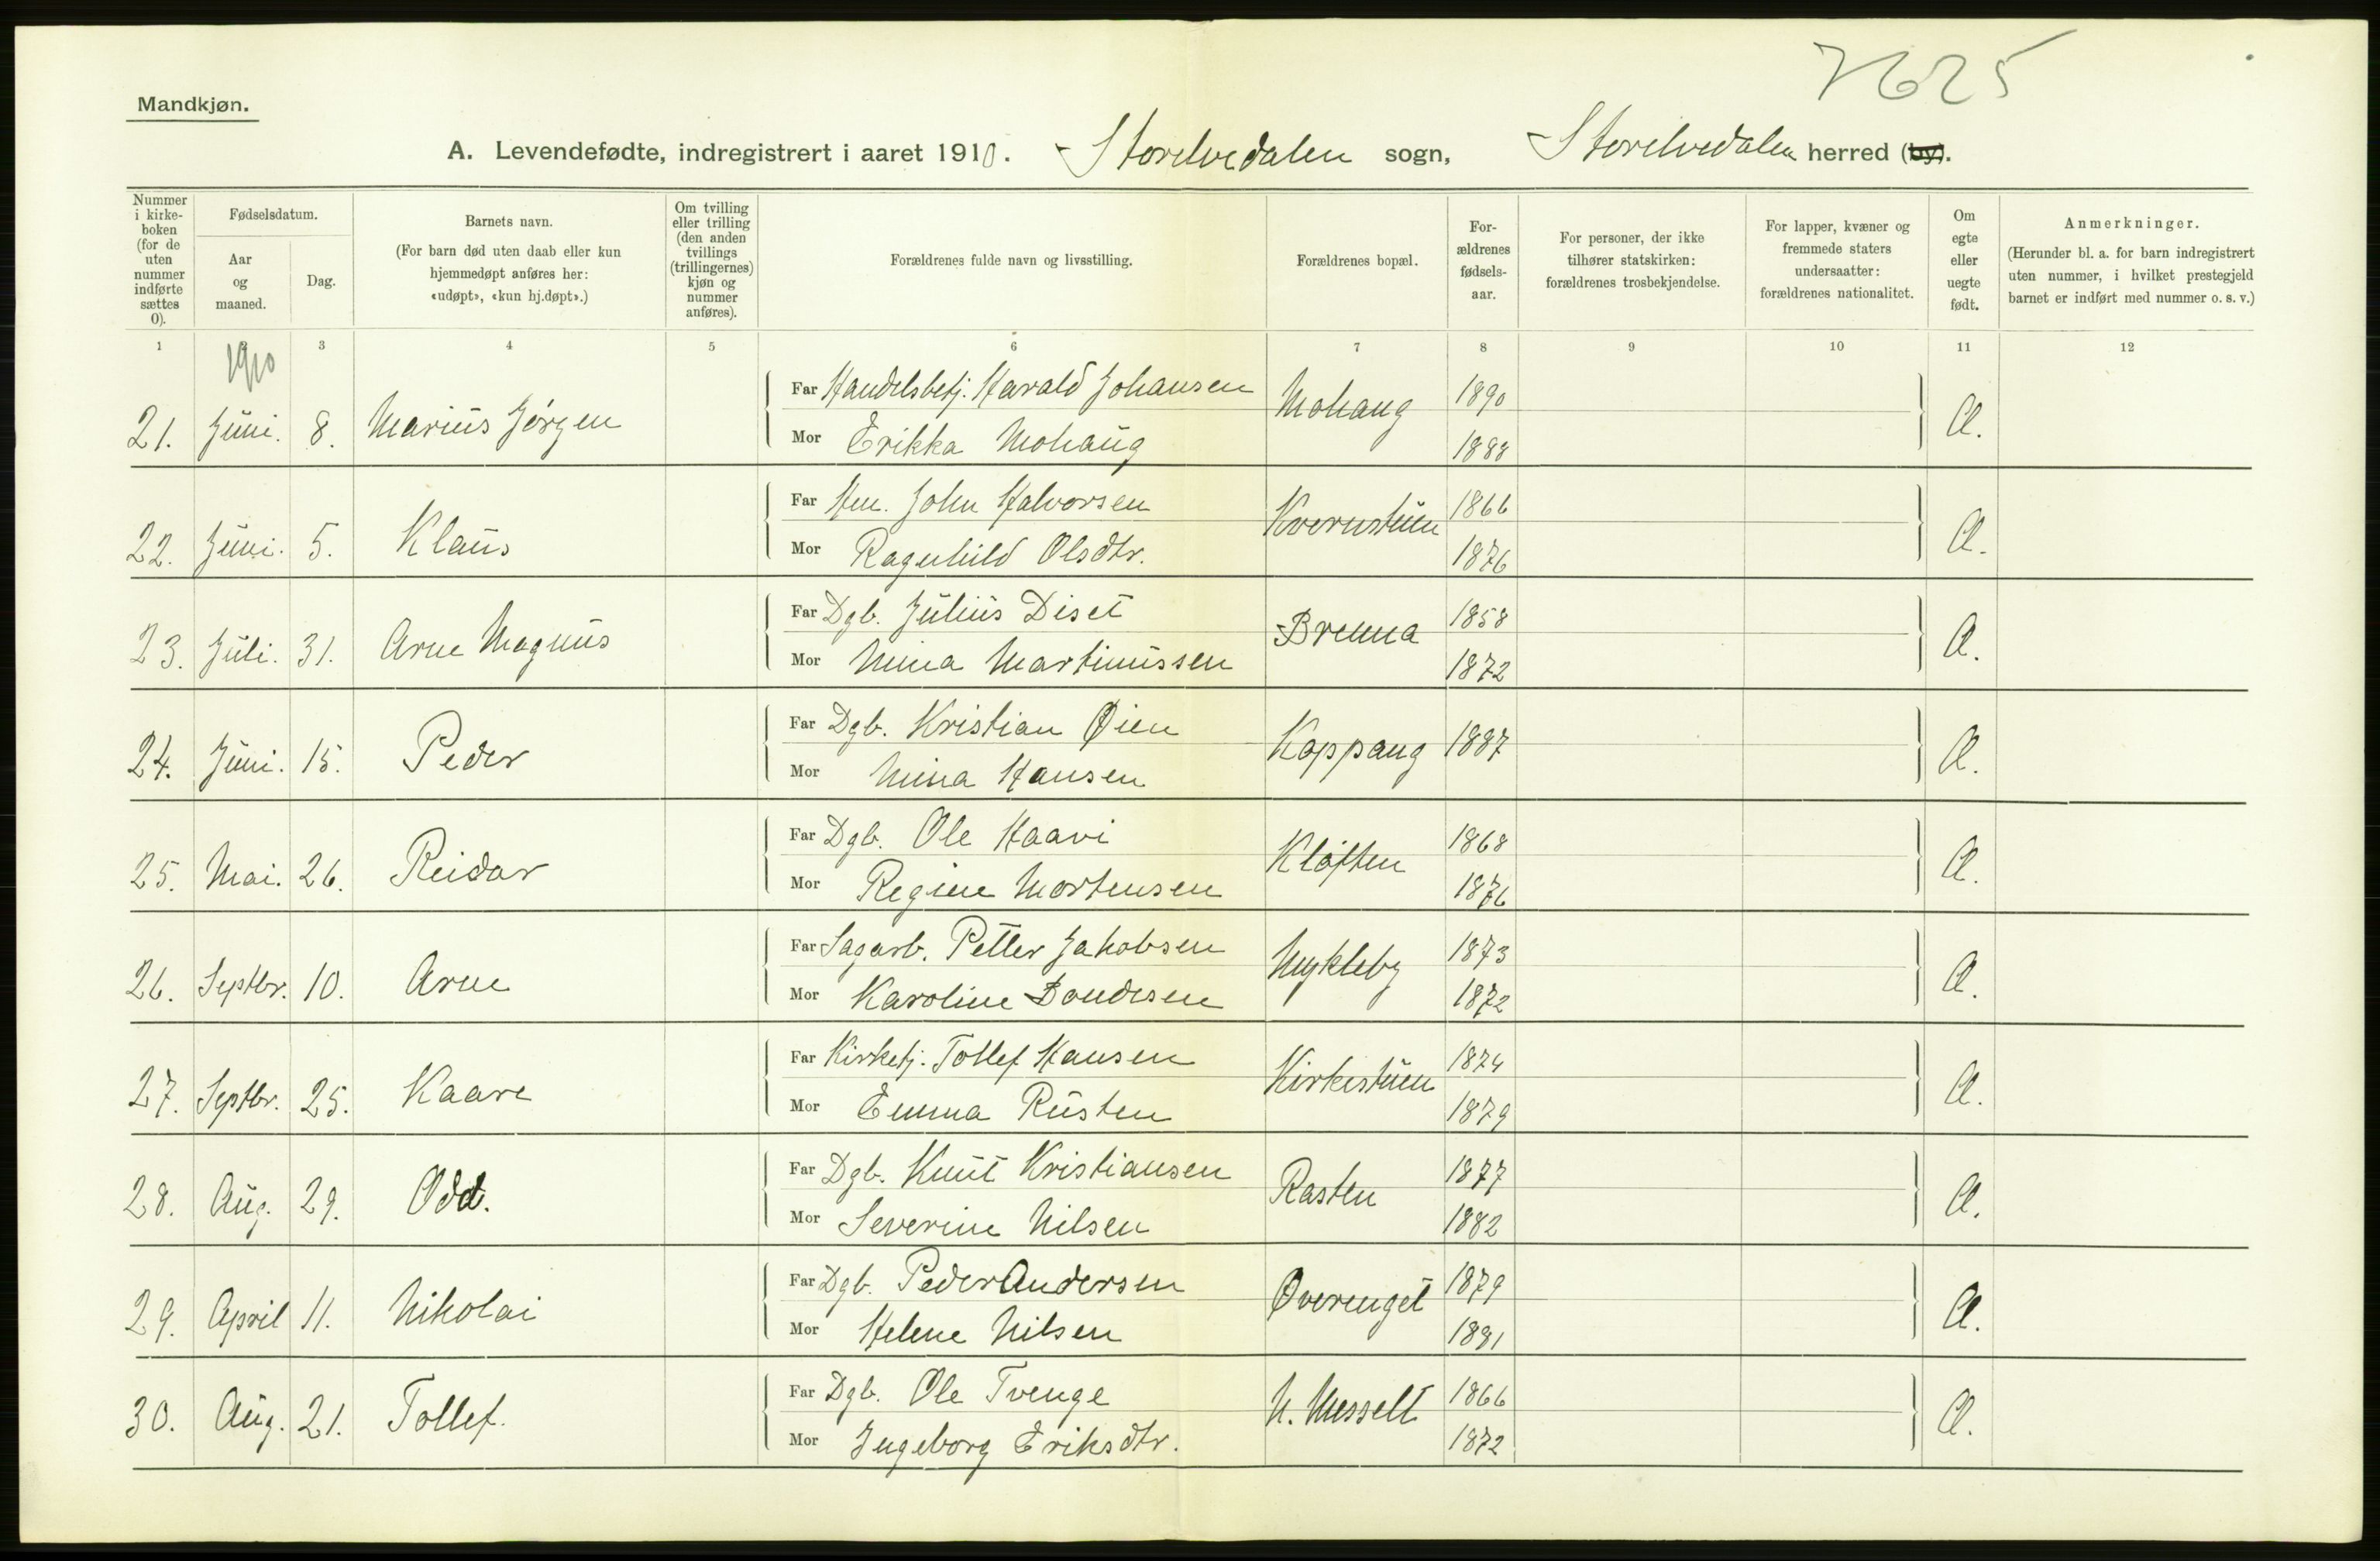 7625
Mandkjøn.
A. Levendefødte, indregistrert i aaret 1910. Storelvedalen sogn, Storelvedalen herred (by).
Nummer i kirke-boken (for de uten nummer indførte sættes 0).
Fødselsdatum.
Aar og maaned.
Dag.
Barnets navn.
(For barn død uten daab eller kun hjemmedøpt anføres her: «udøpt», «kun hj.døpt».)
Om tvilling eller trilling (den anden tvillings (trillingernes) kjøn og nummer anføres).
Forældrenes fulde navn og livsstilling.
Forældrenes bopæl.
For-ældrenes fødsels-aar.
For personer, der ikke tilhører statskirken: forældrenes trosbekjendelse.
For lapper, kvæner og fremmede staters undersaatter: forældrenes nationalitet.
Om egte eller uegte født.
Anmerkninger.
(Herunder bl. a. for barn indregistrert uten nummer, i hvilket prestegjeld barnet er indført med nummer o. s. v.)
1 2 3 4 5 6 7 8 9 10 11 12
1910
21. Juni. 8. Marius Jørgen Far Handelsbetj. Harald Johansen Mohaug 1890 Æ.
Mor Erikka Mohaug 1888
22. Juni. 5. Klaus Far Hm. John Halvorsen Kvernstuen 1866 Æ.
Mor Ragnhild Olsdtr. 1876
23. Juli. 31. Arne Magnus Far Dgb. Julius Diset Brenna 1858 Æ.
Mor Mina Martinussen 1872
24. Juni. 15. Peder Far Dgb. Kristian Øien Koppang 1887 Æ.
Mor Mina Hansen
25. Mai. 26. Reidar Far Dgb. Ole Haavi Kløften 1868 Æ.
Mor Regine Mortensen 1876
26. Septbr. 10. Arne Far Sagarb. Petter Jakobsen Mykleby 1873 Æ.
Mor Karoline Bondesen 1872
27. Septbr. 25. Kaare Far Kirketj. Tollef Hansen Kirkestuen 1874 Æ.
Mor Emma Rusten 1879
28. Aug. 29. Odd. Far Dgb. Knut Kristiansen Rasten 1877 Æ.
Mor Severine Nilsen 1882
29. April 11. Nikolai Far Dgb. Peder Andersen Øverenget 1879 Æ.
Mor Helene Nilsen 1881
30. Aug. 21. Tollef. Far Dgb. Ole Tvenge N. Messelt 1866 Æ.
Mor Ingeborg Eriksdtr. 1872